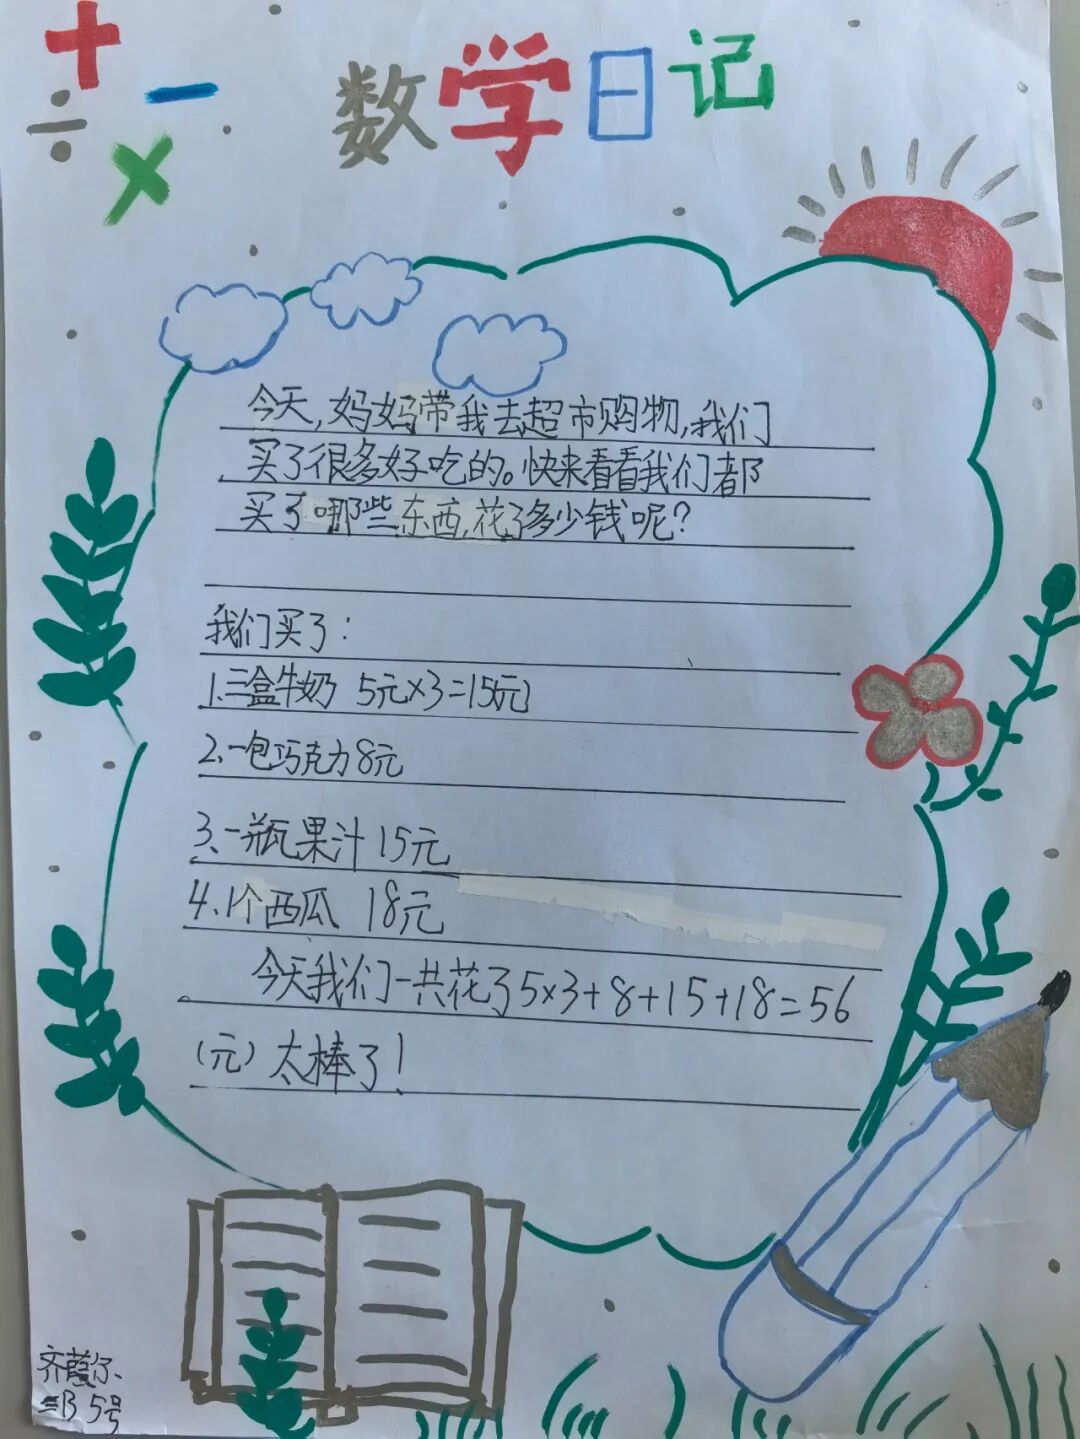 + - ÷ ×
数学日记
今天,妈妈带我去超市购物,我们
买了很多好吃的。快来看看我们都
买了哪些东西,花了多少钱呢?
我们买了:
1.三盒牛奶 5元×3=15(元)
2.一包巧克力8元
3.一瓶果汁15元
4.1个西瓜 18元
今天我们一共花了5×3+8+15+18=56
(元)太棒了!
齐葭尔
三B 5号